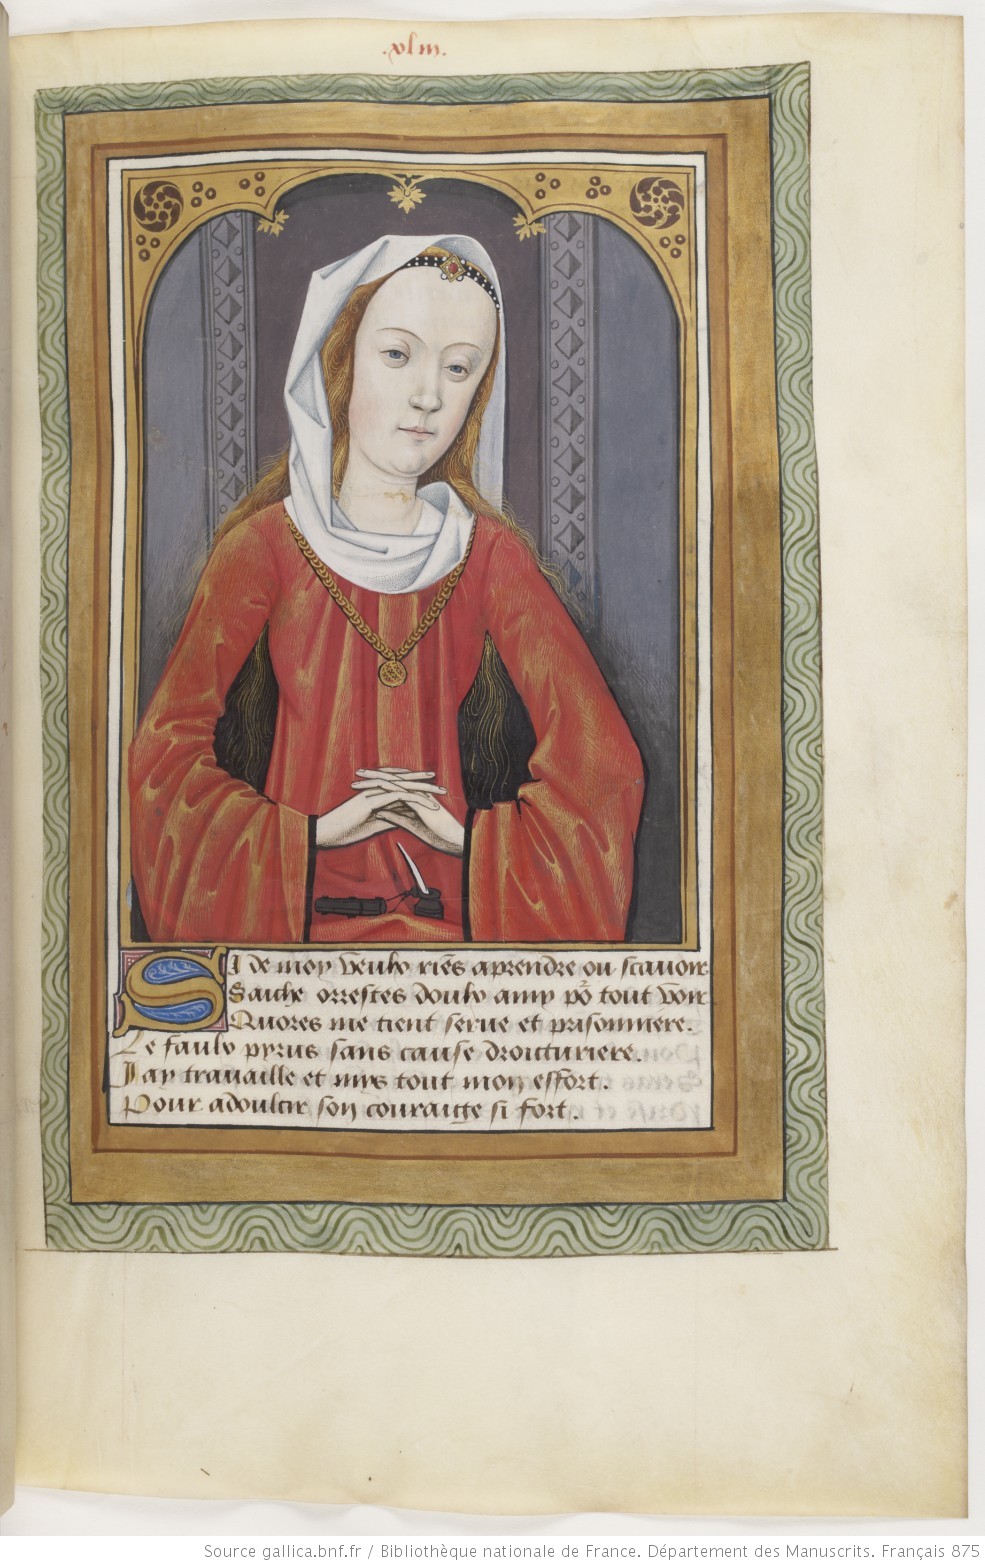 .xliii.
SI de moy veulx riens aprendre ou scauoir
Saiche orrestes doulx amy po᷑ tout voir
Quores me tient serue et prisonniere.
Le faulx pyrus sans cause droicturiere.
Iay trauaille et mys tout mon effort.
Pour adoulcir son couraige si fort.
Source gallica.bnf.fr / Bibliothèque nationale de France. Département des Manuscrits. Français 875